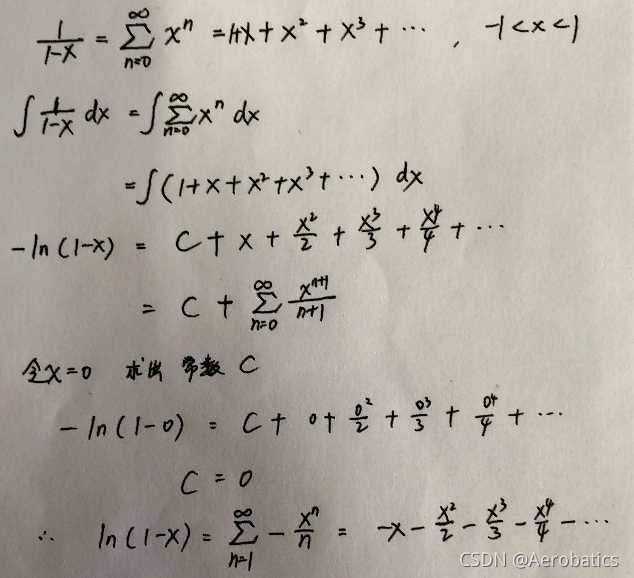 1/(1-x) = ∑_{n=0}^{∞} x^n = 1+x+x²+x³+⋯ , -1<x<1
∫ 1/(1-x) dx = ∫ ∑_{n=0}^{∞} x^n dx
= ∫(1+x+x²+x³+⋯) dx
-ln(1-x) = C+x+x²/2+x³/3+x⁴/4+⋯
= C + ∑_{n=0}^{∞} x^{n+1}/(n+1)
令x=0 求出 常数 C
-ln(1-0) = C+0+0²/2+0³/3+0⁴/4+⋯
C=0
∴ ln(1-x) = ∑_{n=1}^{∞} -x^n/n = -x-x²/2-x³/3-x⁴/4-⋯
CSDN @Aerobatics